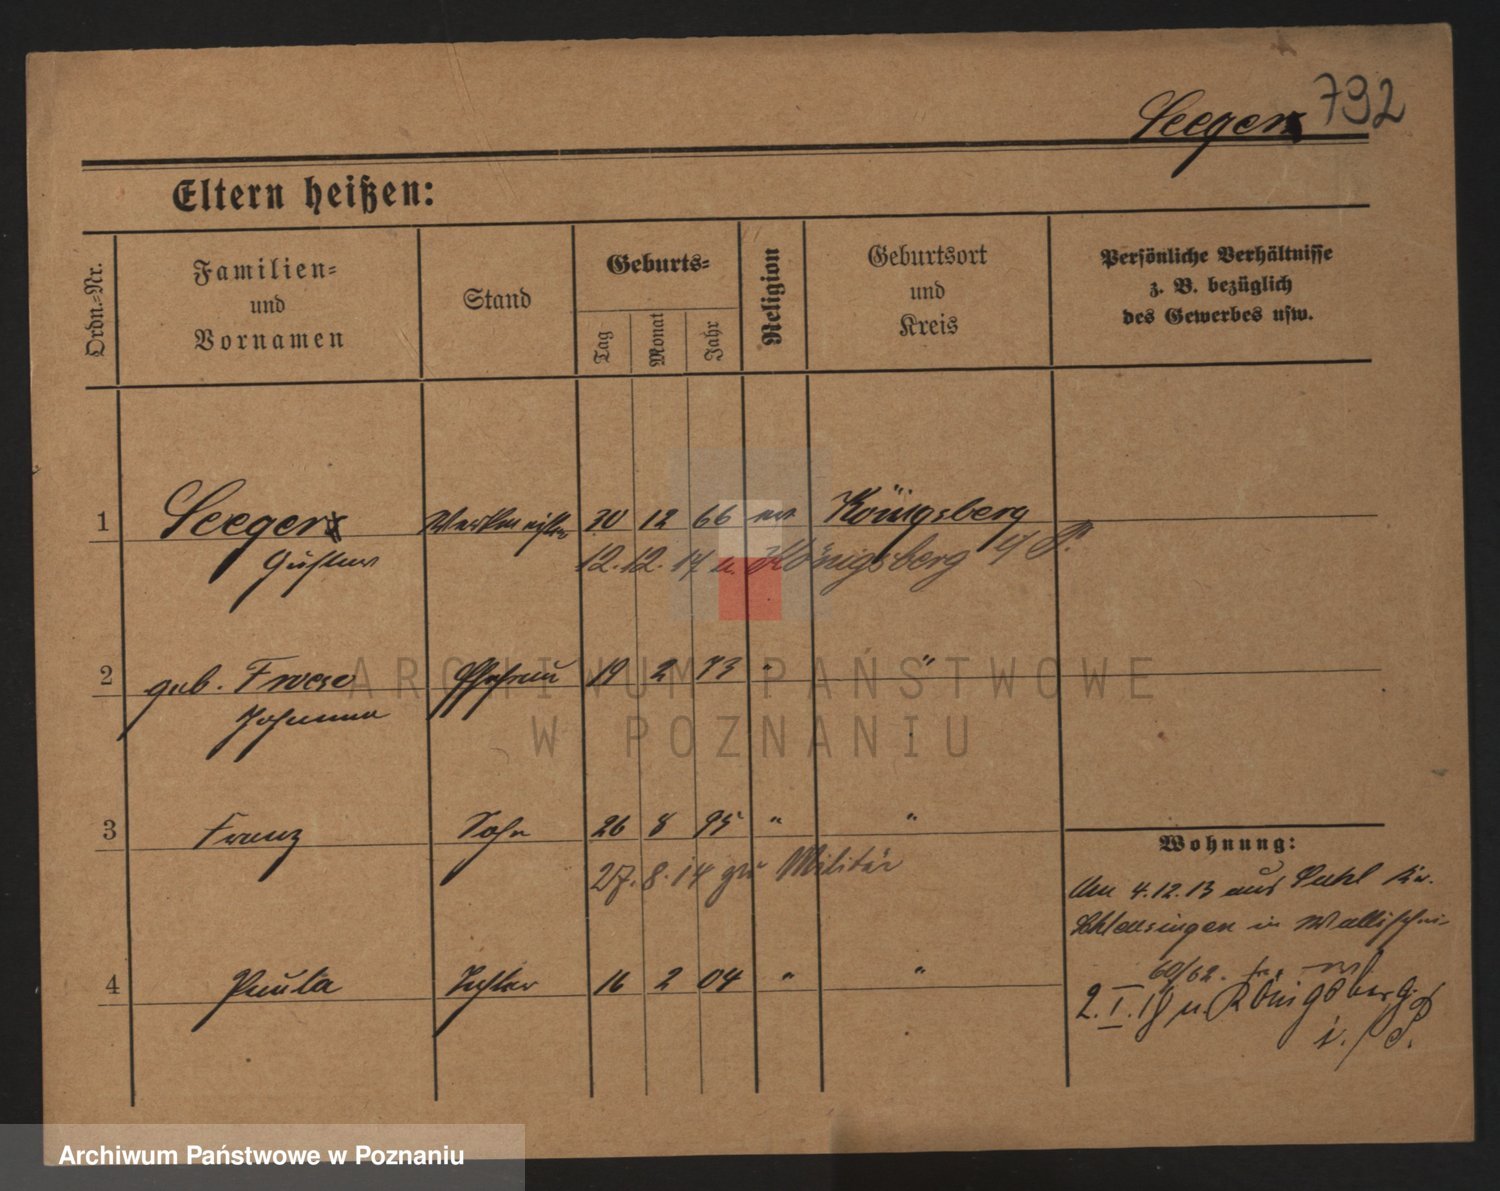 Seeger 792
Eltern heißen:
Ordn.-Nr.
Familien-
und
Vornamen
Stand
Geburts-
Tag
Monat
Jahr
Religion
Geburtsort
und
Kreis
Persönliche Verhältnisse
z. B. bezüglich
des Gewerbes usw.
1 Seeger Werkmeister 30 12 66 ev Königsberg
Gustav 12.12.17 n. Königsberg i/P.
2 geb. Froese Ehefrau 19 2 73 " "
Johanna
3 Franz Sohn 26 8 95 " "
27.8.14 zu Militär
Wohnung:
Am 4.12.13 aus Suhl Kr.
Schleusingen in Wallischei-
4 Paula Tochter 16 2 04 " "
60/62.
2.I.18 n. Königsberg
i./P.
ARCHIWUM PAŃSTWOWE
W POZNANIU
Archiwum Państwowe w Poznaniu